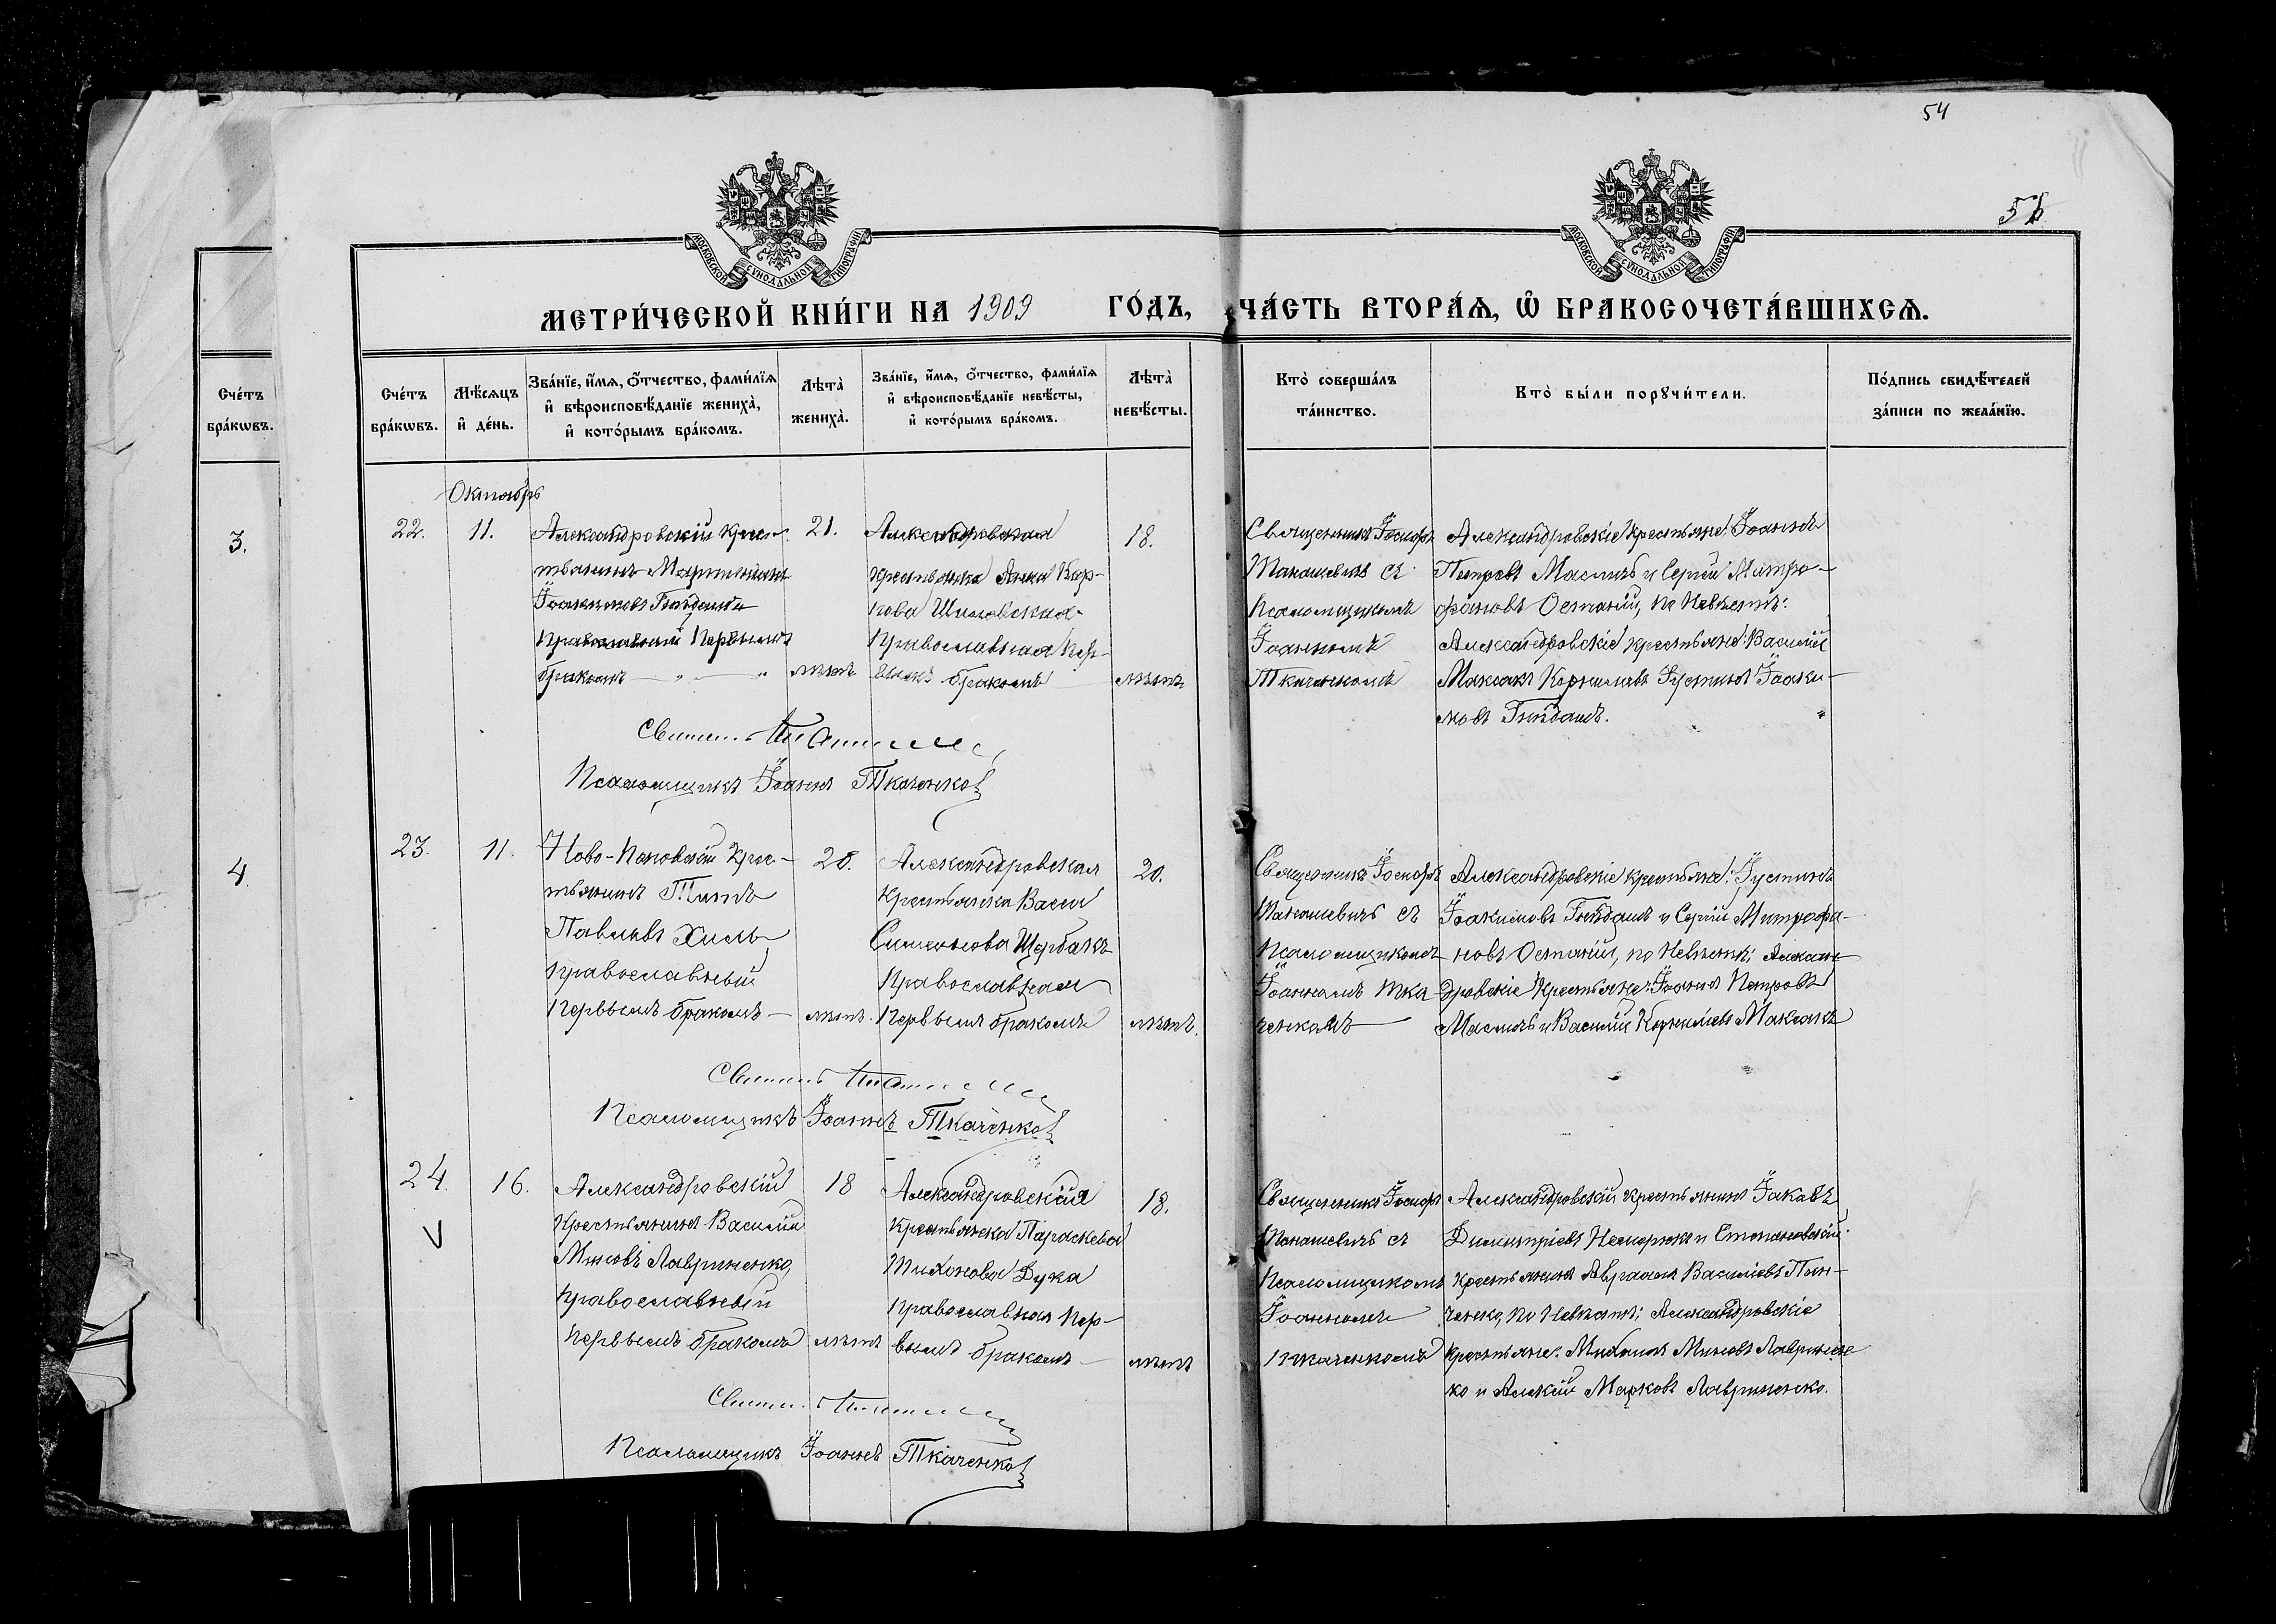 54
5
МОСКОВСКОЙ СУНОДАЛЬНОЙ ТИПОГРАФІИ
МОСКОВСКОЙ СУНОДАЛЬНОЙ ТИПОГРАФІИ
МЕТРИ́ЧЕСКОЙ КНИ́ГИ НА 1909 ГО́ДЪ,
ЧА́СТЬ ВТОРА́Я, Ѡ БРАКОСОЧЕТА́ВШИХСЯ.
Сче́тъ
бра́кѡвъ.
3.
4.
Сче́тъ
бра́кѡвъ.
Мѣ́сяцъ
и҆ де́нь.
Зва́нїе, и҆́мя, ѻ҆́тчество, фами́лїя
и҆ вѣроисповѣ́данїе жениха̀,
и҆ кото́рымъ бра́комъ.
Лѣта̀
жениха̀.
Зва́нїе, и҆́мя, ѻ҆́тчество, фами́лїя
и҆ вѣроисповѣ́данїе невѣ́сты,
и҆ кото́рымъ бра́комъ.
Лѣта̀
невѣ́сты.
Кто̀ соверша́лъ
та́инство.
Кто̀ бы́ли порꙋчи́тели.
По́дпись свидѣ́телей
за́писи по жела́нїю.
Октябрь
22.
11.
Александровскій крес-
тьянинъ Мартиніанъ
Іоакимовъ Гнѣдашъ
Православный Первымъ
бракомъ — " — "
21.
лѣтъ
Александровская
крестьянка Анна Кар-
пова Шиловская
Православная Пер-
вымъ бракомъ
18.
лѣтъ
Священникъ Іосифъ
съ
Псаломщикомъ
Іоанномъ
Ткаченкомъ
Александровскіе крестьяне: Іоаннъ
Петровъ Масличъ и Сергій Митро-
фановъ Остапій, по Невѣстѣ:
Александровскіе крестьяне: Василій
Максакъ Корниліевъ Іустинъ Іоаки-
мовъ Гнѣдашъ.
Псаломщикъ Іоаннъ Ткаченко
23.
11.
крес-
тьянинъ Титъ
Павловъ Хиль
православный
Первымъ бракомъ —
20.
лѣтъ.
Александровская
крестьянка Васса
Симеонова Щербакъ
Православная
Первымъ бракомъ
20.
лѣтъ.
Священникъ Іосифъ
съ
Псаломщикомъ
Іоанномъ Тка
ченкомъ
Александровскіе крестьяне: Іустинъ
Іоакимовъ Гнѣдашъ и Сергій Митрофа-
новъ Остапій, по Невѣстѣ; Алексан-
дровскіе Крестьяне: Іоаннъ Петровъ
Масличъ и Василій Корниліевъ Максакъ
Псаломщикъ Іоаннъ Ткаченко
24.
V
16.
Александровскій
Крестьянинъ Василій
Миновъ Лавриненко,
православный
Первымъ бракомъ
18
лѣтъ
Александровская
Крестьянка Параскева
Тихонова Дука
православная Пер-
вымъ бракомъ —
18.
лѣтъ
Священникъ Іосифъ
съ
Псаломщикомъ
Іоанномъ
Ткаченкомъ
Александровскій крестьянинъ Іаковъ
Димитріевъ и Степановскій
крестьянинъ Авраамъ Василіевъ
ченко, по Невѣстѣ; Александровскіе
крестьяне: Михаилъ Миновъ Лавринен
ко и Алексій Марковъ Лавриненко.
Псаломщикъ Іоаннъ Ткаченко